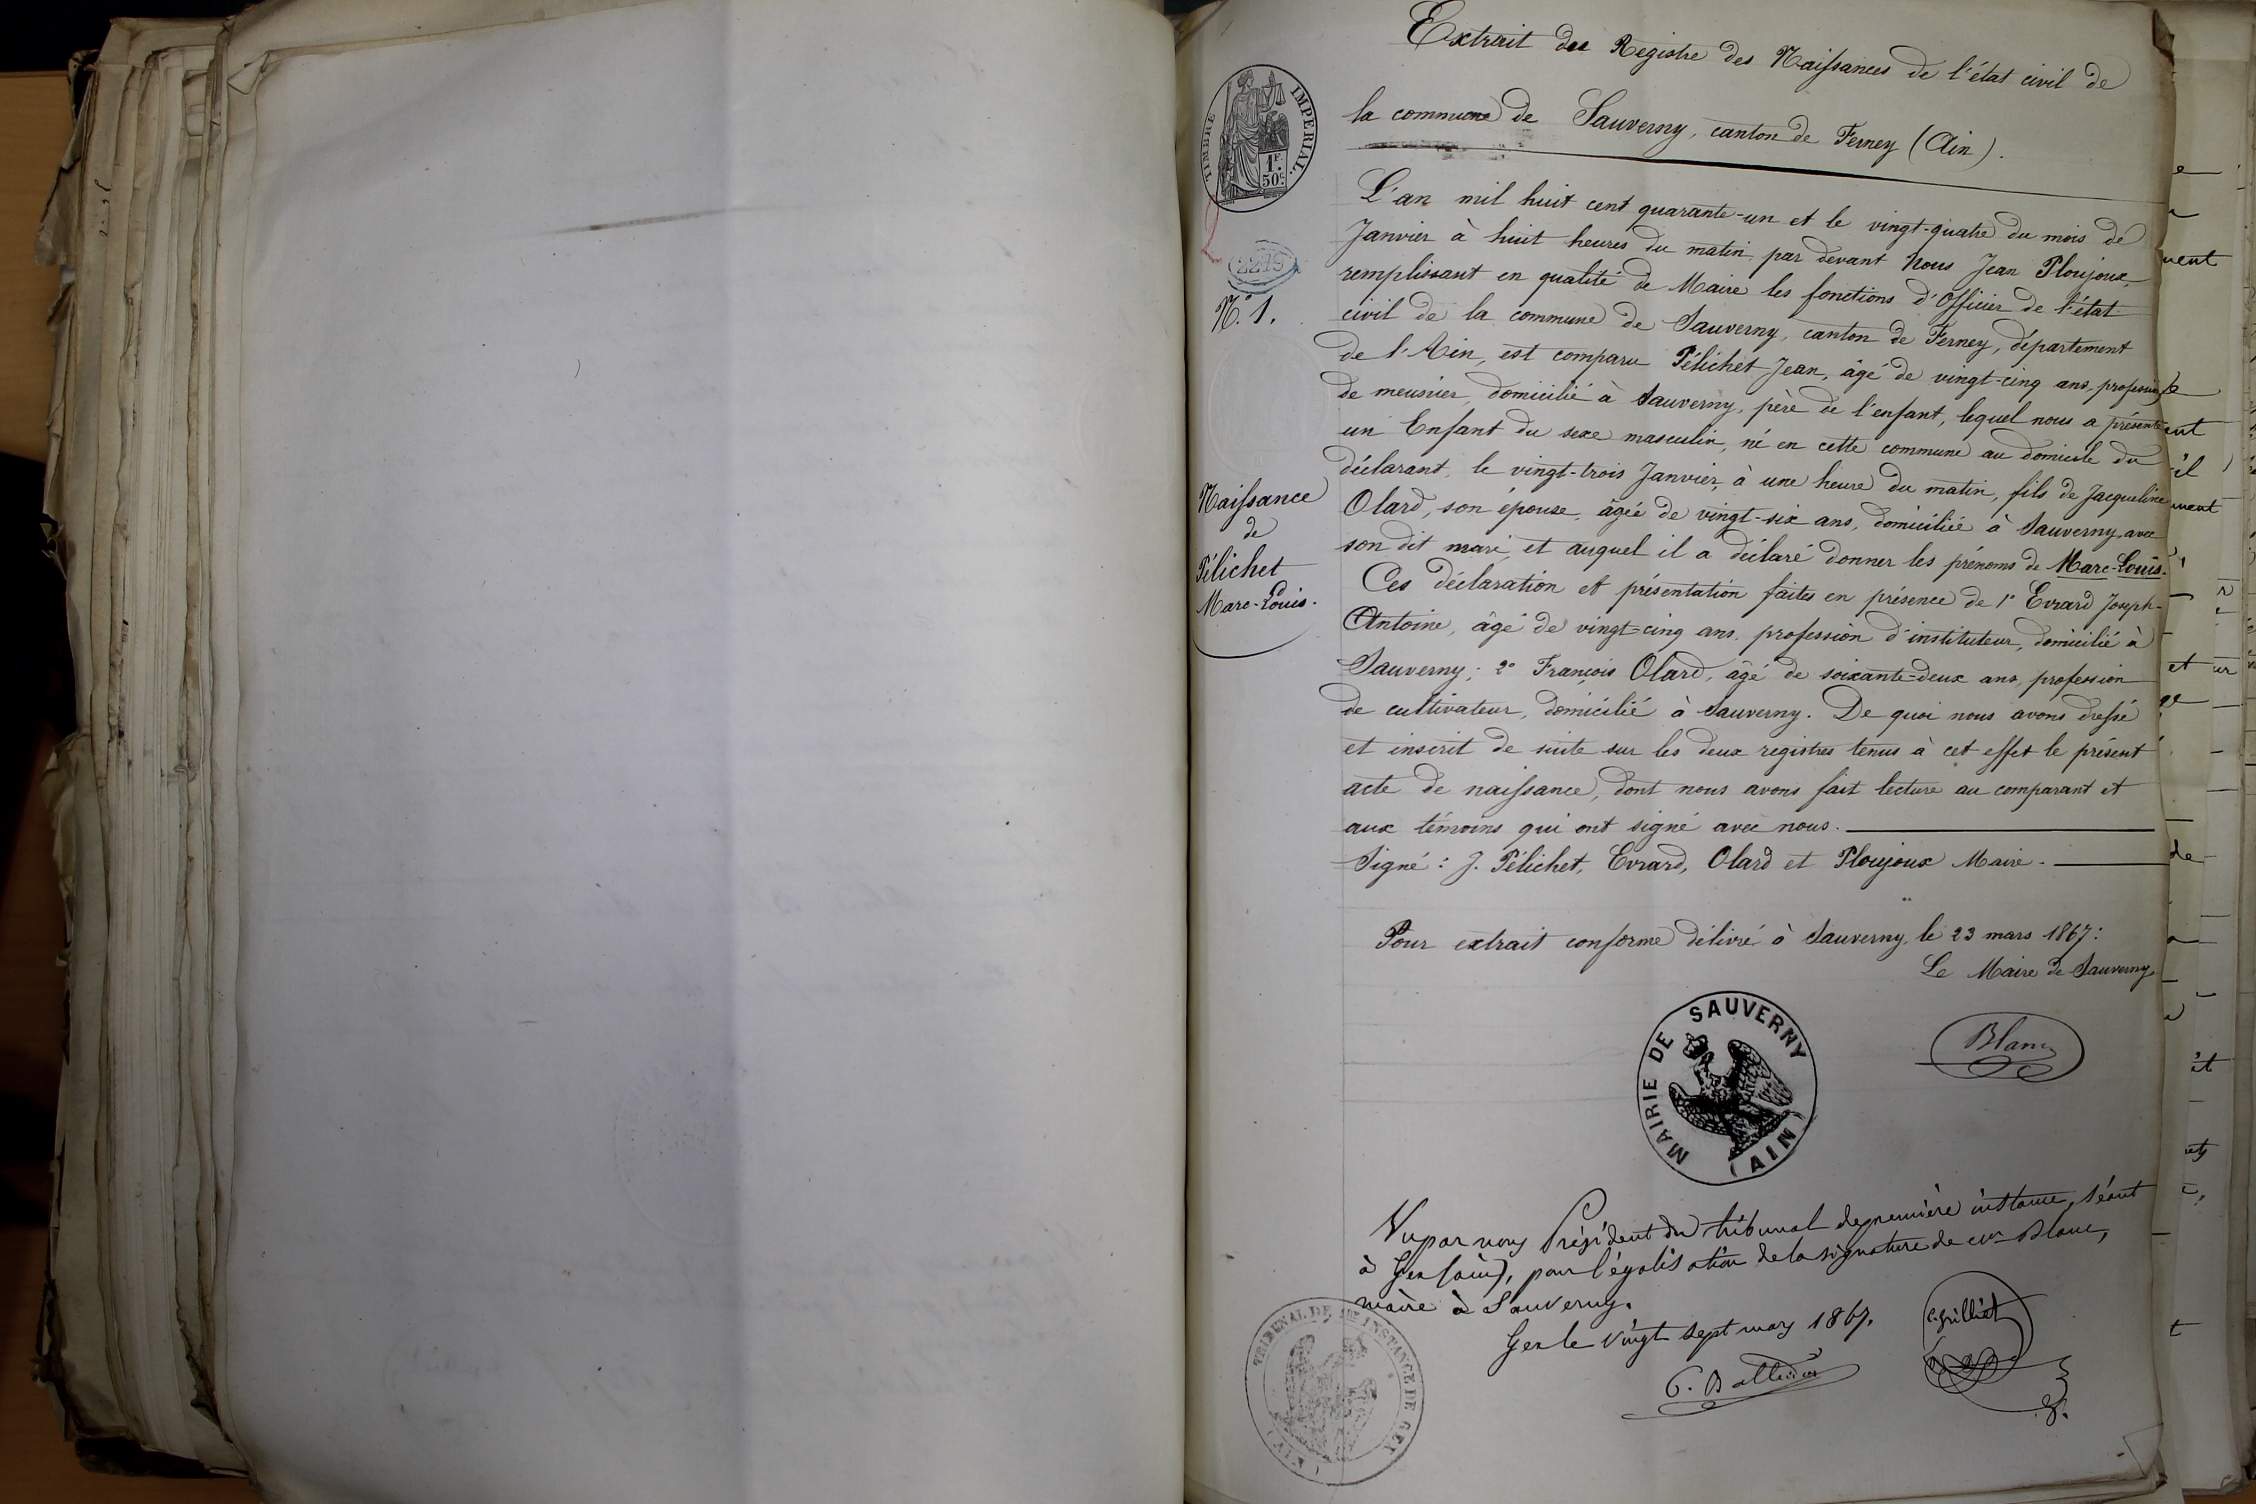 Extrait des Registre des Naissances de l'état civil de
la commune de Sauverny, canton de Ferney (Ain).
TIMBRE IMPERIAL.
1F.
50C.
2279
N.° 1.
L'an mil huit cent quarante-un et le vingt-quatre du mois de
Janvier à huit heures du matin par devant Nous Jean Ploujoux,
remplissant en qualité de Maire les fonctions d'Officier de l'état
civil de la commune de Sauverny, canton de Ferney, département
de l'Ain, est comparu Pélichet Jean, âgé de vingt-cinq ans, profession
de meunier, domicilié à Sauverny, père de l'enfant, lequel nous a présenté
un Enfant du sexe masculin, né en cette commune au domicile du
déclarant, le vingt-trois Janvier, à une heure du matin, fils de Jacqueline
Olard, son épouse, âgée de vingt-six ans, domiciliée à Sauverny, avec
son dit mari, et auquel il a déclaré donner les prénoms de Marc-Louis.
Naissance
de
Pélichet
Marc-Louis.
Ces déclaration et présentation faites en présence de 1° Evrard Joseph-
Antoine, âgé de vingt-cinq ans, profession d'instituteur, domicilié à
Sauverny; 2° François Olard, âgé de soixante-deux ans, profession
de cultivateur, domicilié à Sauverny. De quoi nous avons dressé
et inscrit de suite sur les deux registres tenus à cet effet le présent
acte de naissance, dont nous avons fait lecture au comparant et
aux témoins qui ont signé avec nous.
Signé : J. Pélichet, Evrard, Olard et Ploujoux Maire.
Pour extrait conforme délivré à Sauverny, le 23 mars 1867:
Le Maire de Sauverny,
Blanc
MAIRIE DE SAUVERNY
(AIN)
Vu par nous Président du tribunal de première instance, séant
à Gex (ain), pour légalisation de la signature de Mr Blanc,
maire à Sauverny.
Gex le vingt sept mars 1867.
TRIBUNAL DE 1ère INSTANCE DE GEX
(AIN)